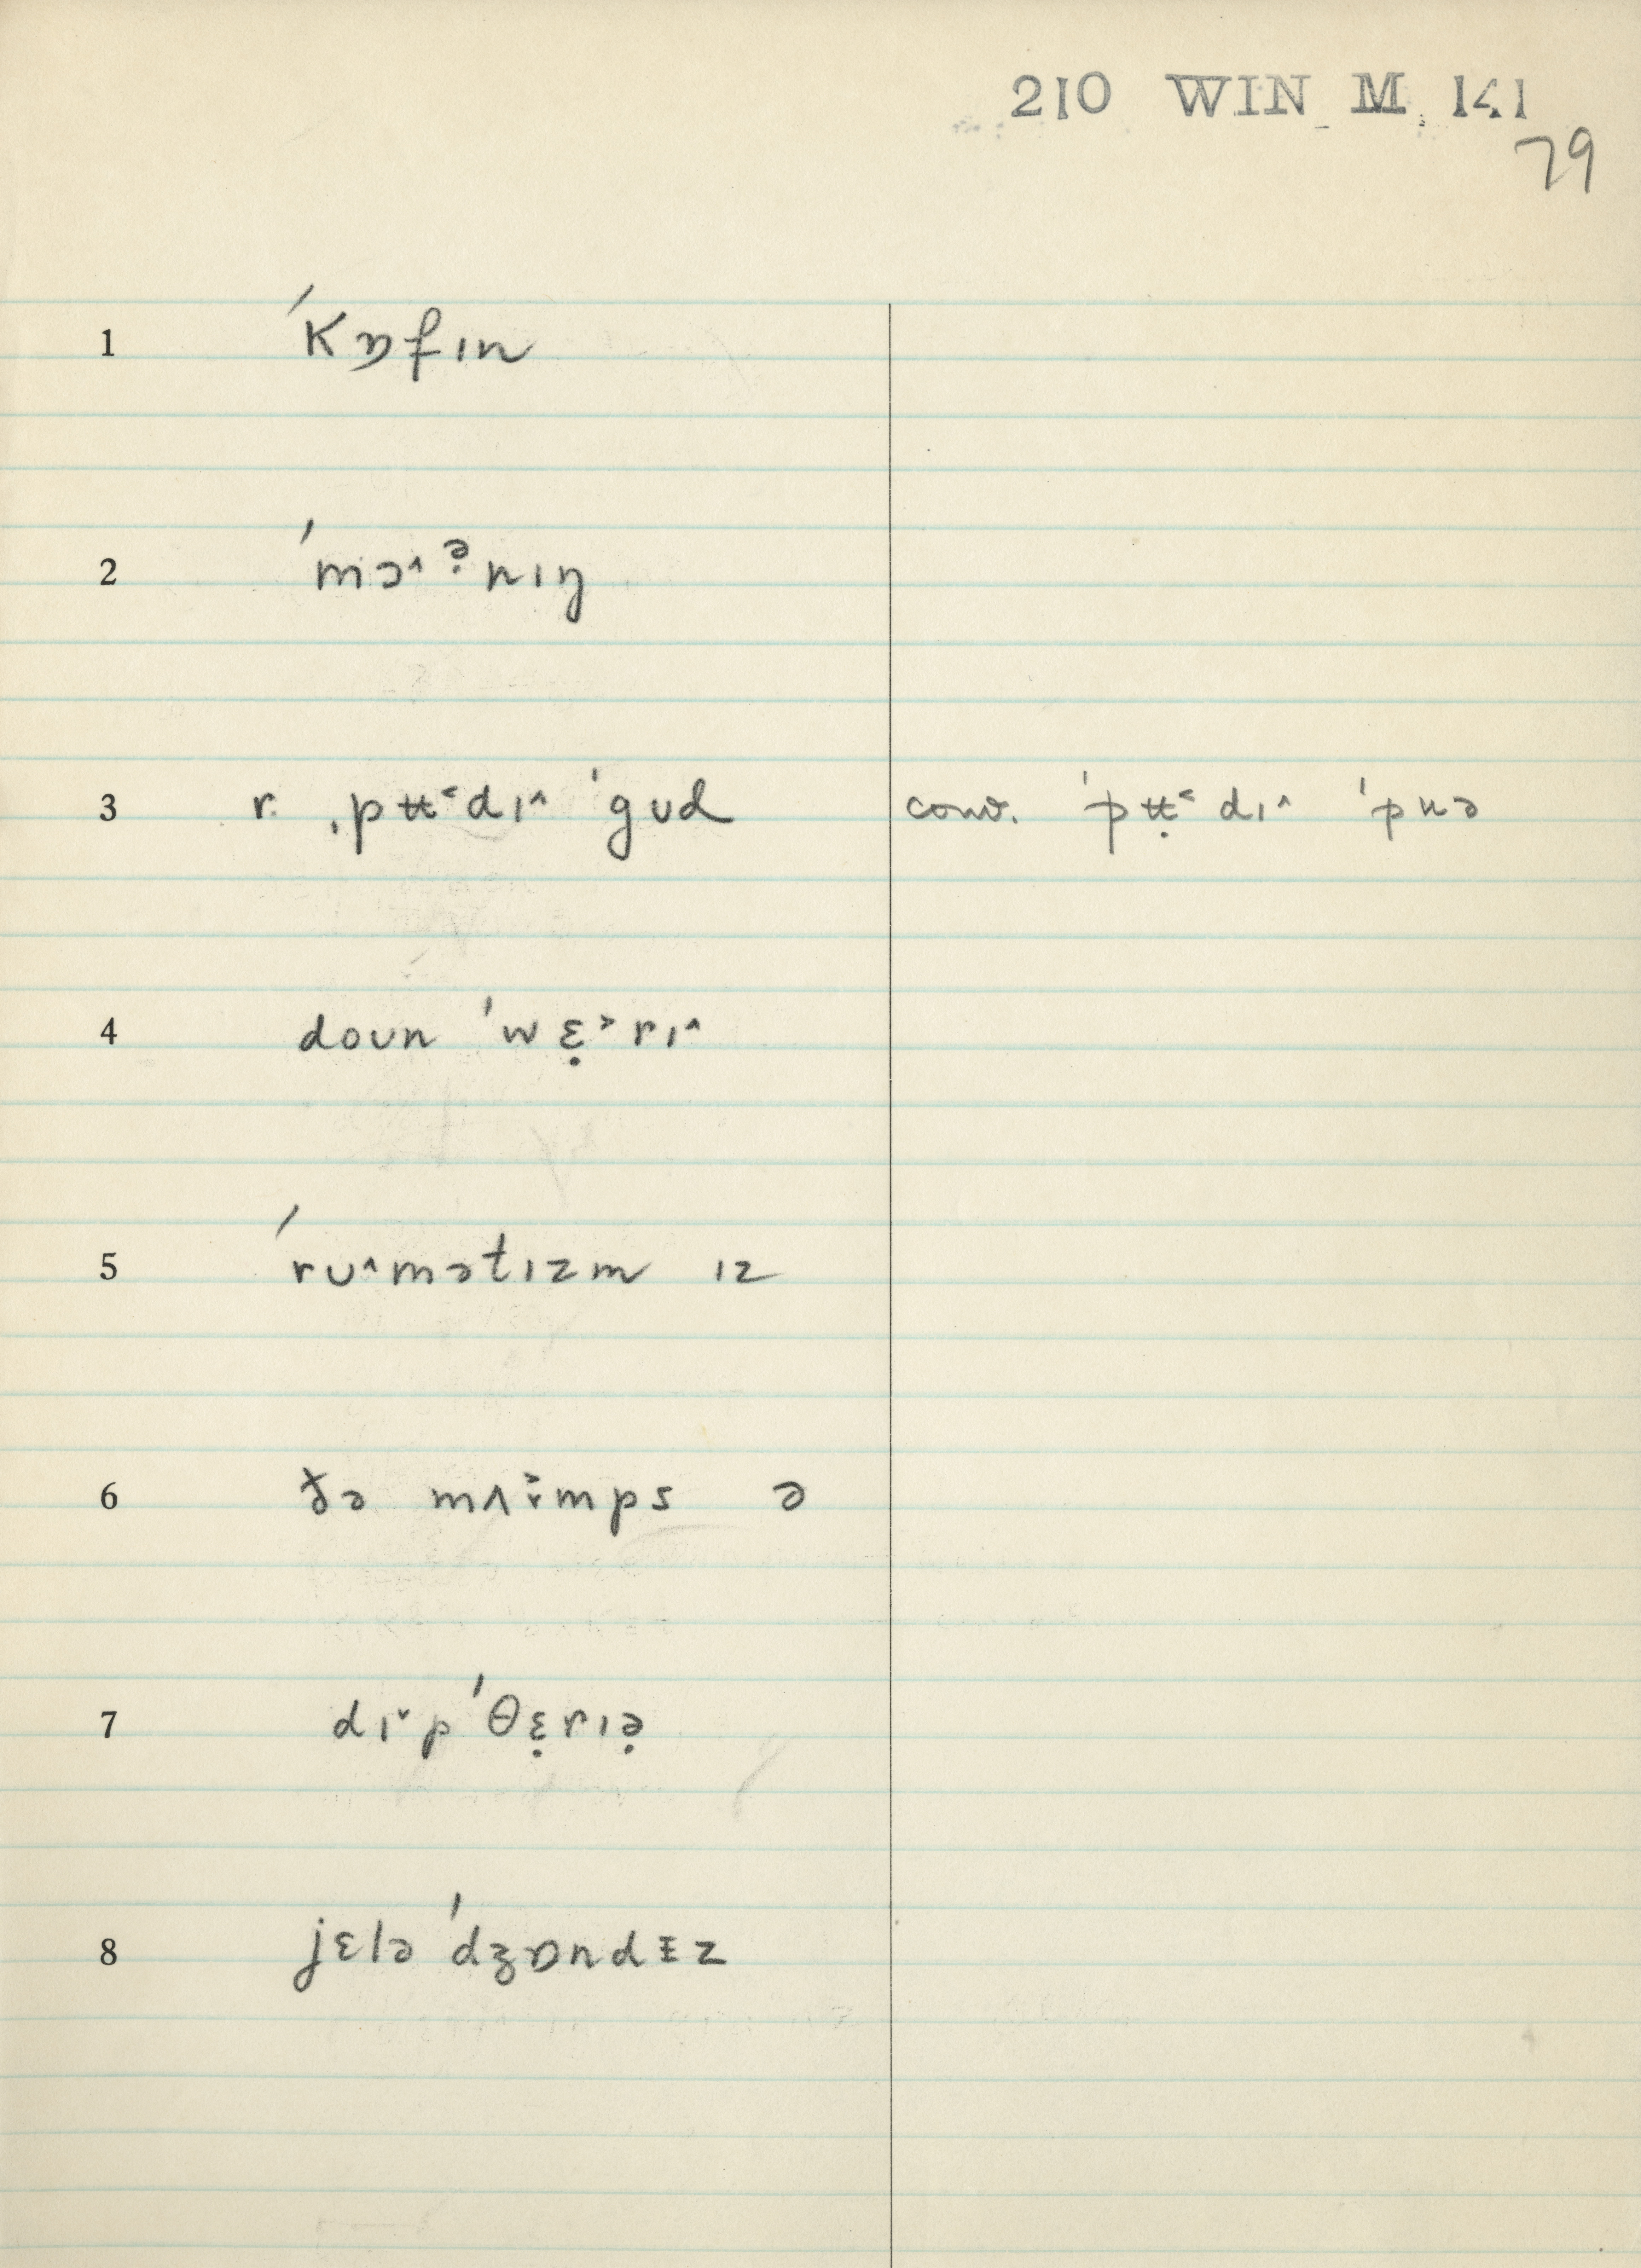 210 WIN M 141
79
1 ˈkɒfɪn
2 ˈmɔ˄ ə̣nɪŋ
3 r. ˌpʉt˂dɪ˄ ˈgud conv. ˈpʉ̣t˂dɪ˄ ˈpuə
4 doun ˈwɛ̣˃rɪ˄
5 ˈru˄mətɪzm ɪz
6 ðə mʌ ̌ɪmps ə
7 dɪ˅pˈθɛ̣rɪə̣
8 jɛləˈdʒɒndɪz